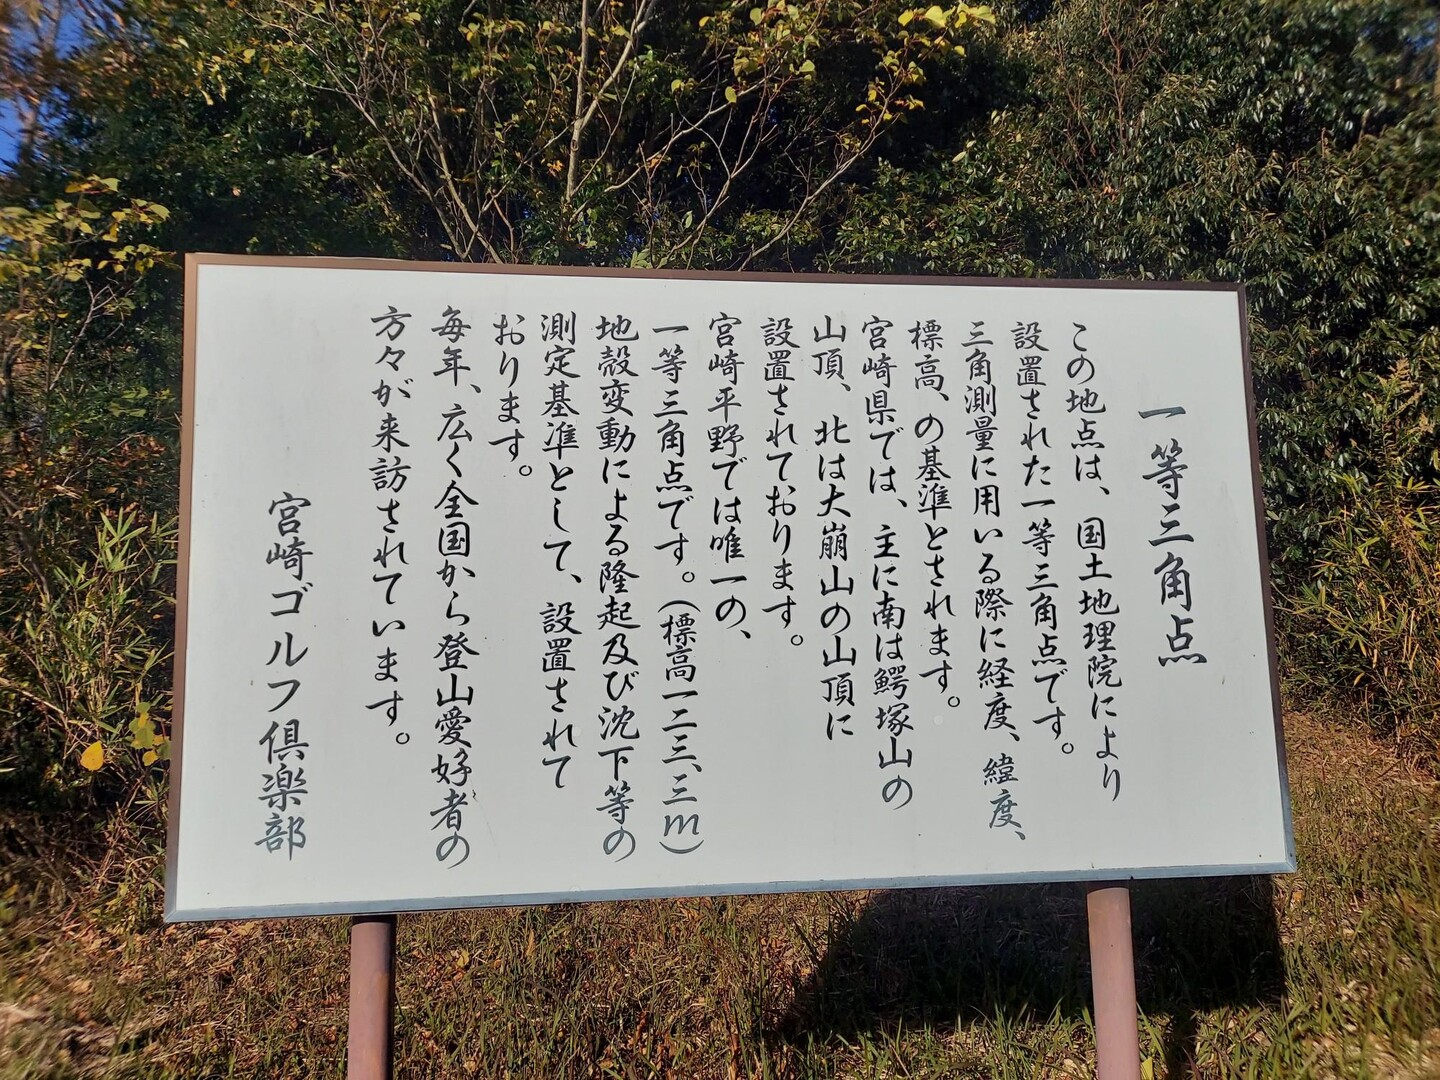 一等三角点
この地点は、国土地理院により
設置された一等三角点です。
三角測量に用いる際に経度、緯度、
標高、の基準とされます。
宮崎県では、主に南は鰐塚山の
山頂、北は大崩山の山頂に
設置されております。
宮崎平野では唯一の、
一等三角点です。(標高一二三、三m)
地殻変動による隆起及び沈下等の
測定基準として、設置されて
おります。
毎年、広く全国から登山愛好者の
方々が来訪されています。
宮崎ゴルフ倶楽部